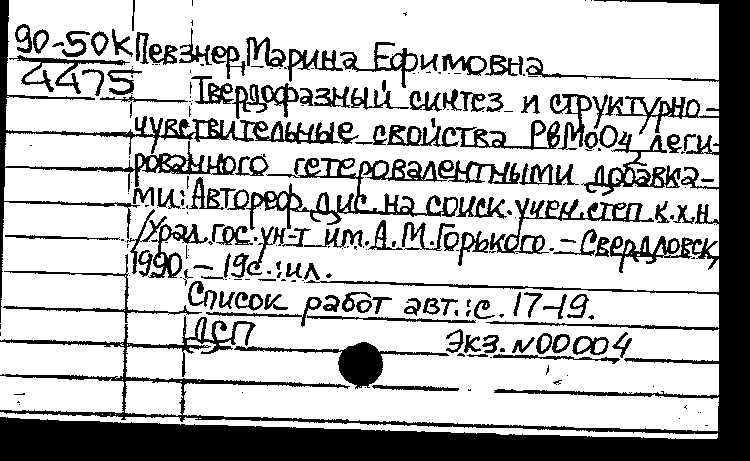 90-50К Певзнер, Марина Ефимовна
4475
Твердофазный синтез и структурно-
чувствительные свойства PbMoO4, леги-
рованного гетеровалентными добавка-
ми: Автореф. дис. на соиск. учен. степ. к.х.н.
/Урал. гос. ун-т им. А.М. Горького. - Свердловск,
1990. - 19с.: ил.
Список работ авт.: с. 17-19.
ДСП Экз. N00004